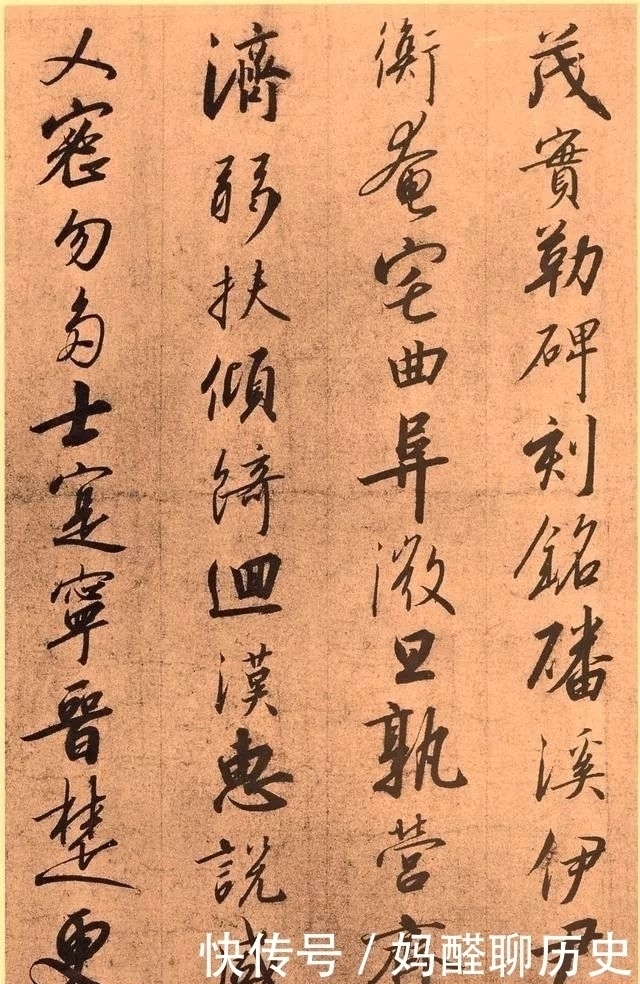 茂實勒碑刻銘磻溪伊尹
衡奄宅曲阜微旦孰營齊
濟弱扶傾綺迴漢惠説感
乂密勿多士寔寧晉楚更
快传号 / 妈醛聊历史